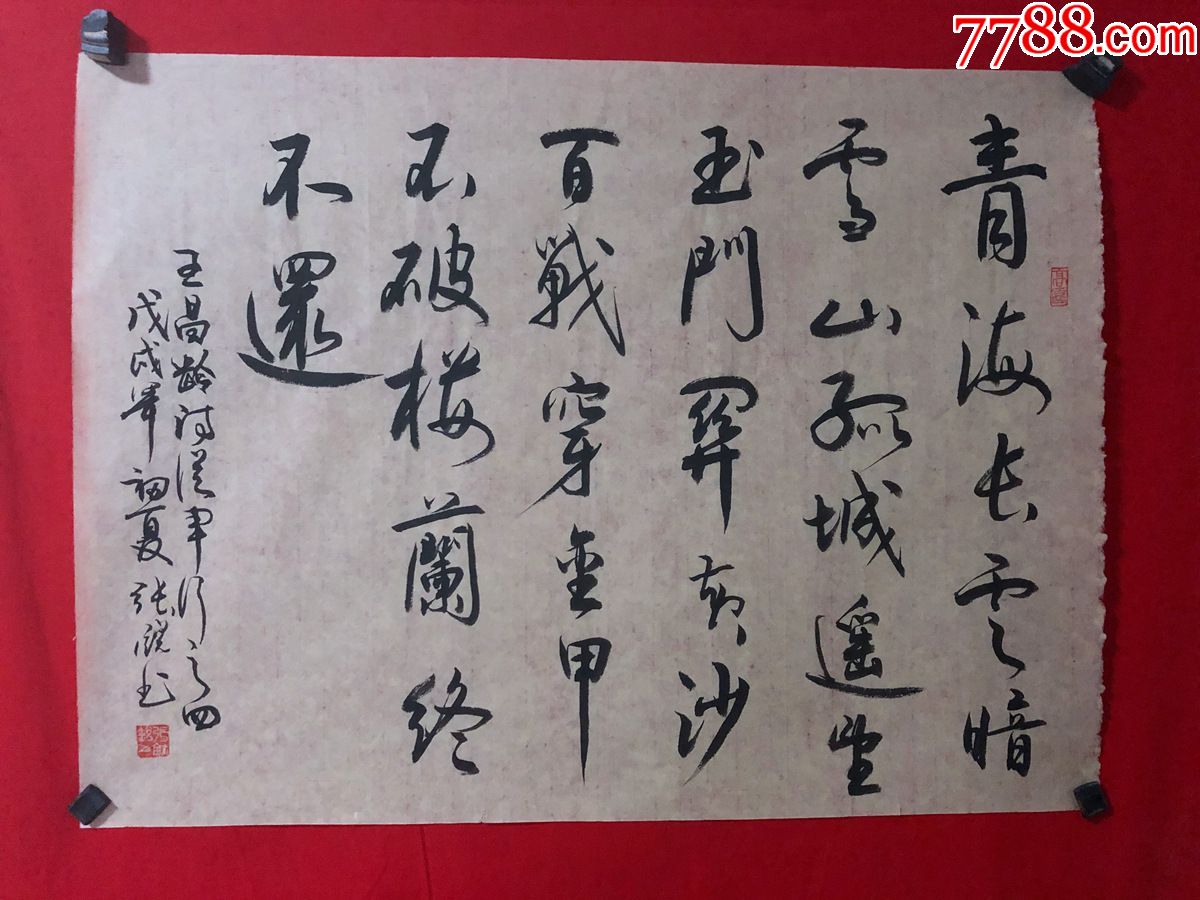 7788.com
青海长雲暗
雪山孤城遥望
玉門關黄沙
百戰穿金甲
不破楼蘭終
不還
王昌龄诗從軍行之四
戊戌年初夏张书